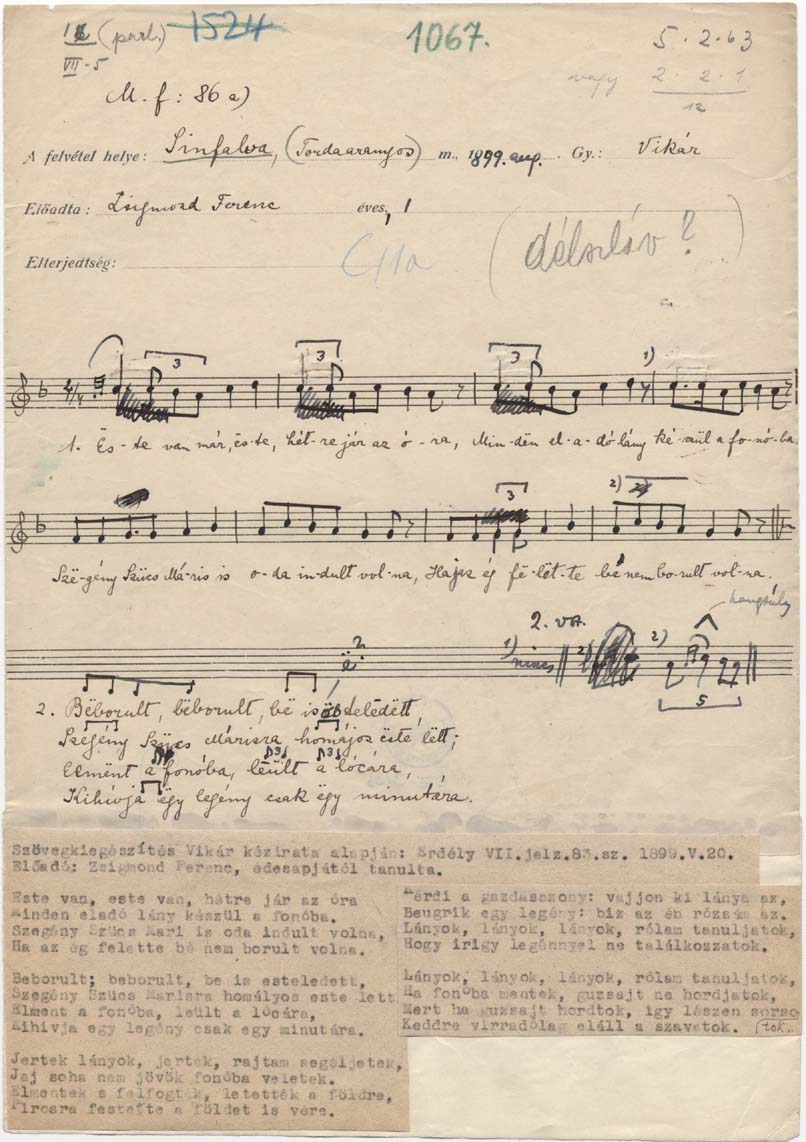 (parl.) 1524 1067. 5·2·63
VII·5 vagy 2·2·1
12
M.f: 86 a)
A felvétel helye: Sinfalva, (Tordaaranyos) m., 1899. aug. Gy.: Vikár
Előadta: Zsigmond Ferenc éves, 1
Elterjedtség:
(délszláv?)
3 3 3 1)
1. Ës-te van már, ës-te, hét-re jár az ó-ra, Min-dën el-a-dó lány ké-szül a fo-nó-ba.
3 2)
Szë-gény Szücs Má-ris is o-da in-dult vol-na, Ha az ég fë-lët-te bé nem bo-rult vol-na.
hangsúly
2. vsz.
1) nincs 2) 2)
5
2. Bëborult, bëborult, bë is ëstelëdëtt,
Szëgény Szücs Márisra homájos ëste lëtt;
Elmënt a fonóba, lëült a lócára,
Kihívja ëgy legény csak ëgy minutára.
Szövegkiegészítés Vikár kézirata alapján: Erdély VII.jelz.83.sz. 1899.V.20.
Előadó: Zsigmond Ferenc, édesapjától tanulta.
Este van, este van, hétre jár az óra
Minden eladó lány készül a fonóba.
Szegény Szücs Mari is oda indult volna,
Ha az ég felette bé nem borult volna.
Beborult; beborult, be is esteledett,
Szegény Szücs Marisra homályos este lett
Elment a fonóba, leült a lócára,
Kihivja egy legény csak egy minutára.
Jertek lányok, jertek, rajtam segéljetek,
Jaj soha nem jövök fonóba veletek.
Elmentek s felfogták, letették a földre,
Pirosra festette a földet is vére.
Kérdi a gazdasszony: vajjon ki lánya az,
Beugrik egy legény: biz az én rózsám az.
Lányok, lányok, lányok, rólam tanuljatok,
Hogy irigy legénnyel ne találkozzatok.
Lányok, lányok, lányok, rólam tanuljatok,
Ha fonóba mentek, guzsajt ne hordjatok,
Mert ha guzsajt hordtok, igy lészen sorso
Keddre virradólag eláll a szavatok. (tok.